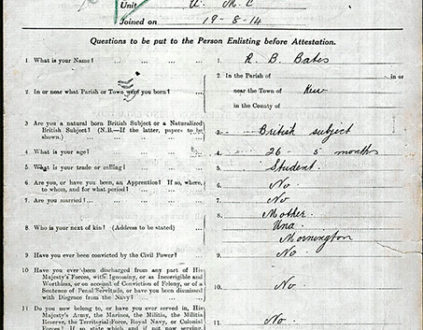 Unit A. M. C
Joined on 19-8-14
Questions to be put to the Person Enlisting before Attestation.
1 What is your Name? 1. R. B. Bates
2 In or near what Parish or Town were you born? 2. In the Parish of in or
near the Town of Kew
in the County of
3 Are you a natural born British Subject or a Naturalized
British Subject? (N.B.—If the latter, papers to be
shown.) 3. British subject
4 What is your age? 4. 26 - 5 months
5 What is your trade or calling? 5. Student.
6 Are you, or have you been, an Apprentice? If so, where,
to whom, and for what period? 6. No
7 Are you married? 7. No
8 Who is your next of kin? (Address to be stated) 8. Mother.
Una
Mornington
9 Have you ever been convicted by the Civil Power? 9. No
10 Have you ever been discharged from any part of His
Majesty's Forces, with Ignominy, or as Incorrigible and
Worthless, or on account of Conviction of Felony, or of a
Sentence of Penal Servitude, or have you been dismissed
with Disgrace from the Navy? 10. No
11 Do you now belong to, or have you ever served in, His
Majesty's Army, the Marines, the Militia, the Militia
Reserve, the Territorial Force, Royal Navy, or Colonial
Forces? If so, state which, and if not now serving 11. No